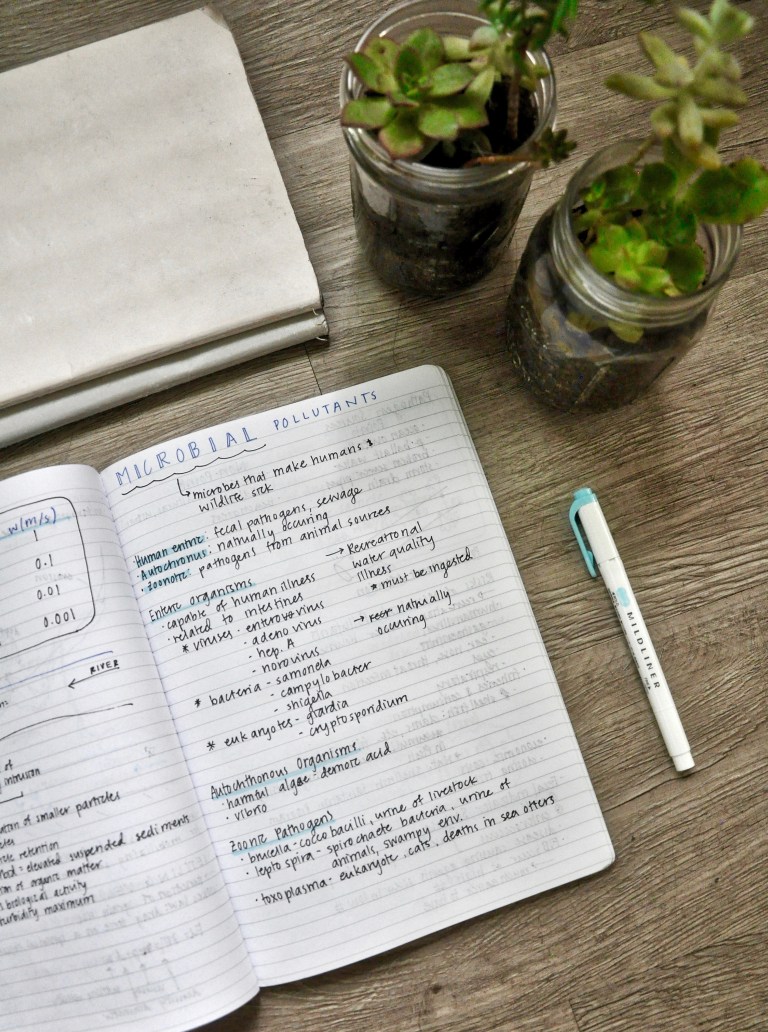 w(m/s)
1
0.1
0.01
0.001
RIVER
of
intrusion
of smaller particles
retention
elevated suspended sediments
of organic matter
biological activity
turbidity maximum
MICROBIAL POLLUTANTS
microbes that make humans +
wildlife sick
Human enteric: fecal pathogens, sewage
· Autochronus: naturally occuring
· Zoonotic: pathogens from animal sources
Enteric organisms
· capable of human illness
· related to intestines
* viruses - enterovirus
- adenovirus
- hep. A
- norovirus
* bacteria - samonela
- campylobacter
- shigella
* eukaryotes - giardia
- cryptosporidium
→ Recreational
water quality
illness
* must be ingested
→ naturally
occuring
Autochthonous Organisms
· harmful algae - demoic acid
· vibrio
Zoonic Pathogens
· brucella - coccobacilli, urine of livestock
· leptospira - spirochaete bacteria, urine of
animals, swampy env.
· toxoplasma - eukaryote, cats, deaths in sea otters
MILDLINER